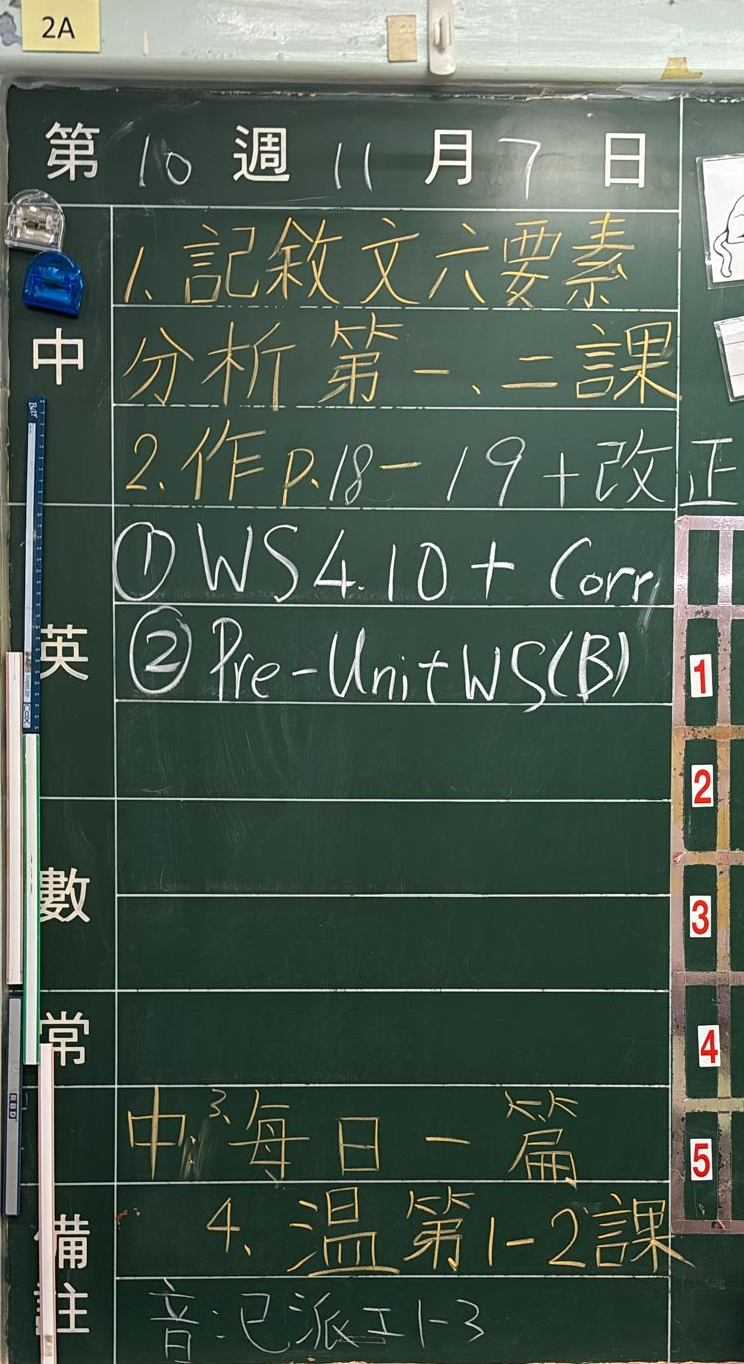 2A
第10週11月7日
中
1.記敘文六要素
分析第一、二課
2.作p.18-19+改正
英
①WS4.10+Corr
②Pre-Unit WS(B)
數
常
備註
中:3.每日一篇
4、温第1-2課
音:派工1-3
1
2
3
4
5